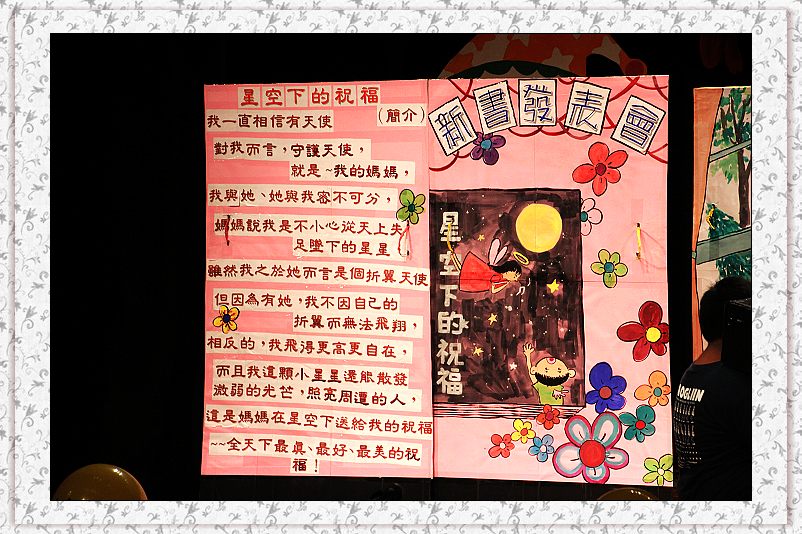 星空下的祝福
(簡介)
我一直相信有天使
對我而言,守護天使,
就是~我的媽媽,
我與她、她與我密不可分,
媽媽說我是不小心從天上失
足墜下的星星
雖然我之於她而言是個折翼天使
但因為有她,我不因自己的
折翼而無法飛翔,
相反的,我飛得更高更自在,
而且我這顆小星星還能散發
微弱的光芒,照亮周遭的人,
這是媽媽在星空下送給我的祝福
~~全天下最真、最好、最美的祝
福!
新書發表會
星空下的祝福